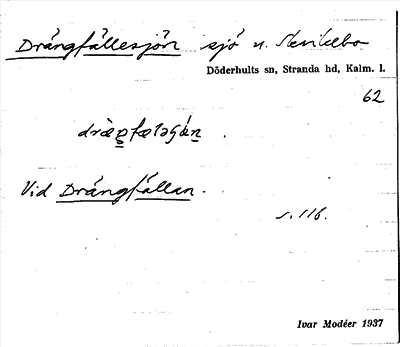 Drängfällesjön sjö n. Stenlebo
Döderhults sn, Stranda hd, Kalm. l.
62
Vid Drängfällan.
s. 116.
Ivar Modéer 1937